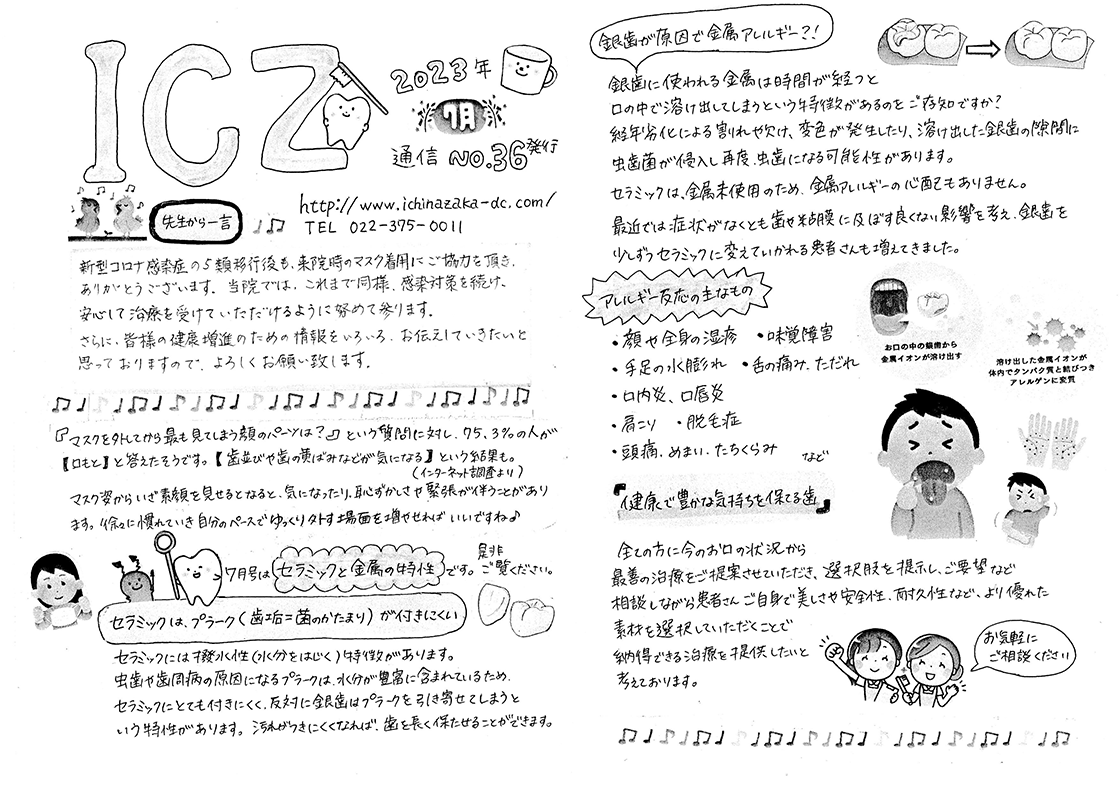 ICZ
2023年
7月
通信 NO.36 発行
先生から一言
http://www.ichinazaka-dc.com/
TEL 022-375-0011
新型コロナ感染症の5類移行後も、来院時のマスク着用にご協力を頂き、
ありがとうございます。当院では、これまで同様、感染対策を続け、
安心して治療を受けていただけるように努めて参ります。
さらに、皆様の健康増進のための情報をいろいろ、お伝えしていきたいと
思っておりますので、よろしくお願い致します。
『マスクを外してから最も見てしまう顔のパーツは?』という質問に対し、75.3%の人が
【口もと】と答えたそうです。【歯並びや歯の黄ばみなどが気になる】という結果も。
(インターネット調査より)
マスク姿からいざ素顔を見せるとなると、気になったり、恥ずかしさや緊張が伴うことがあり
ます。徐々に慣れていき自分のペースでゆっくり外す場面を増やせればいいですね♪
7月号は セラミックと金属の特性 です。是非ご覧ください。
セラミックは、プラーク(歯垢=菌のかたまり)が付きにくい
セラミックには撥水性(水分をはじく)特徴があります。
虫歯や歯周病の原因になるプラークは、水分が豊富に含まれているため、
セラミックにとても付きにくく、反対に銀歯はプラークを引き寄せてしまうと
いう特性があります。汚れがつきにくくなれば、歯を長く保たせることができます。
銀歯が原因で金属アレルギー?!
銀歯に使われる金属は時間が経つと
口の中で溶け出してしまうという特徴があるのをご存知ですか?
経年劣化による割れや欠け、変色が発生したり、溶け出した銀歯の隙間に
虫歯菌が侵入し再度、虫歯になる可能性があります。
セラミックは、金属未使用のため、金属アレルギーの心配もありません。
最近では症状がなくとも歯や粘膜に及ぼす良くない影響を考え、銀歯を
少しずつセラミックに変えていかれる患者さんも増えてきました。
アレルギー反応の主なもの
・顔や全身の湿疹 ・味覚障害
・手足の水膨れ ・舌の痛み、ただれ
・口内炎、口唇炎
・肩こり ・脱毛症
・頭痛、めまい、たちくらみ など
お口の中の銀歯から
金属イオンが溶け出す
溶け出した金属イオンが
体内でタンパク質と結びつき
アレルゲンに変質
『健康で豊かな気持ちを保てる歯』
全ての方に今のお口の状況から
最善の治療をご提案させていただき、選択肢を提示し、ご要望など
相談しながら患者さんご自身で美しさや安全性、耐久性など、より優れた
素材を選択していただくことで
納得できる治療を提供したいと
考えております。
お気軽に
ご相談ください